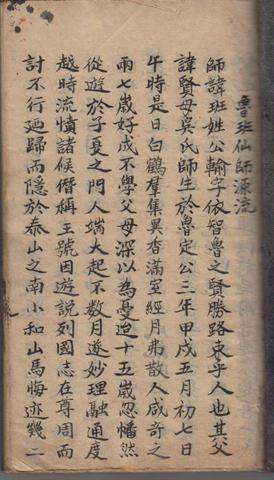 魯班仙師源流
師諱班姓公輸字依智魯之賢勝路東乎人也其父
諱賢母吳氏師生於魯定公三年甲戌五月初七日
午時是日白鶴羣集異香滿室經月弗散人咸奇之
兩七歲好戍不學父母深以為憂迨十五歲忽幡然
從遊於子夏之門人端大起不數月遂妙理融通度
越時流憤諸侯僭稱王號因遊說列國志在尊周而
討不行廼歸而隱於泰山之南小和山馬悔迹幾二